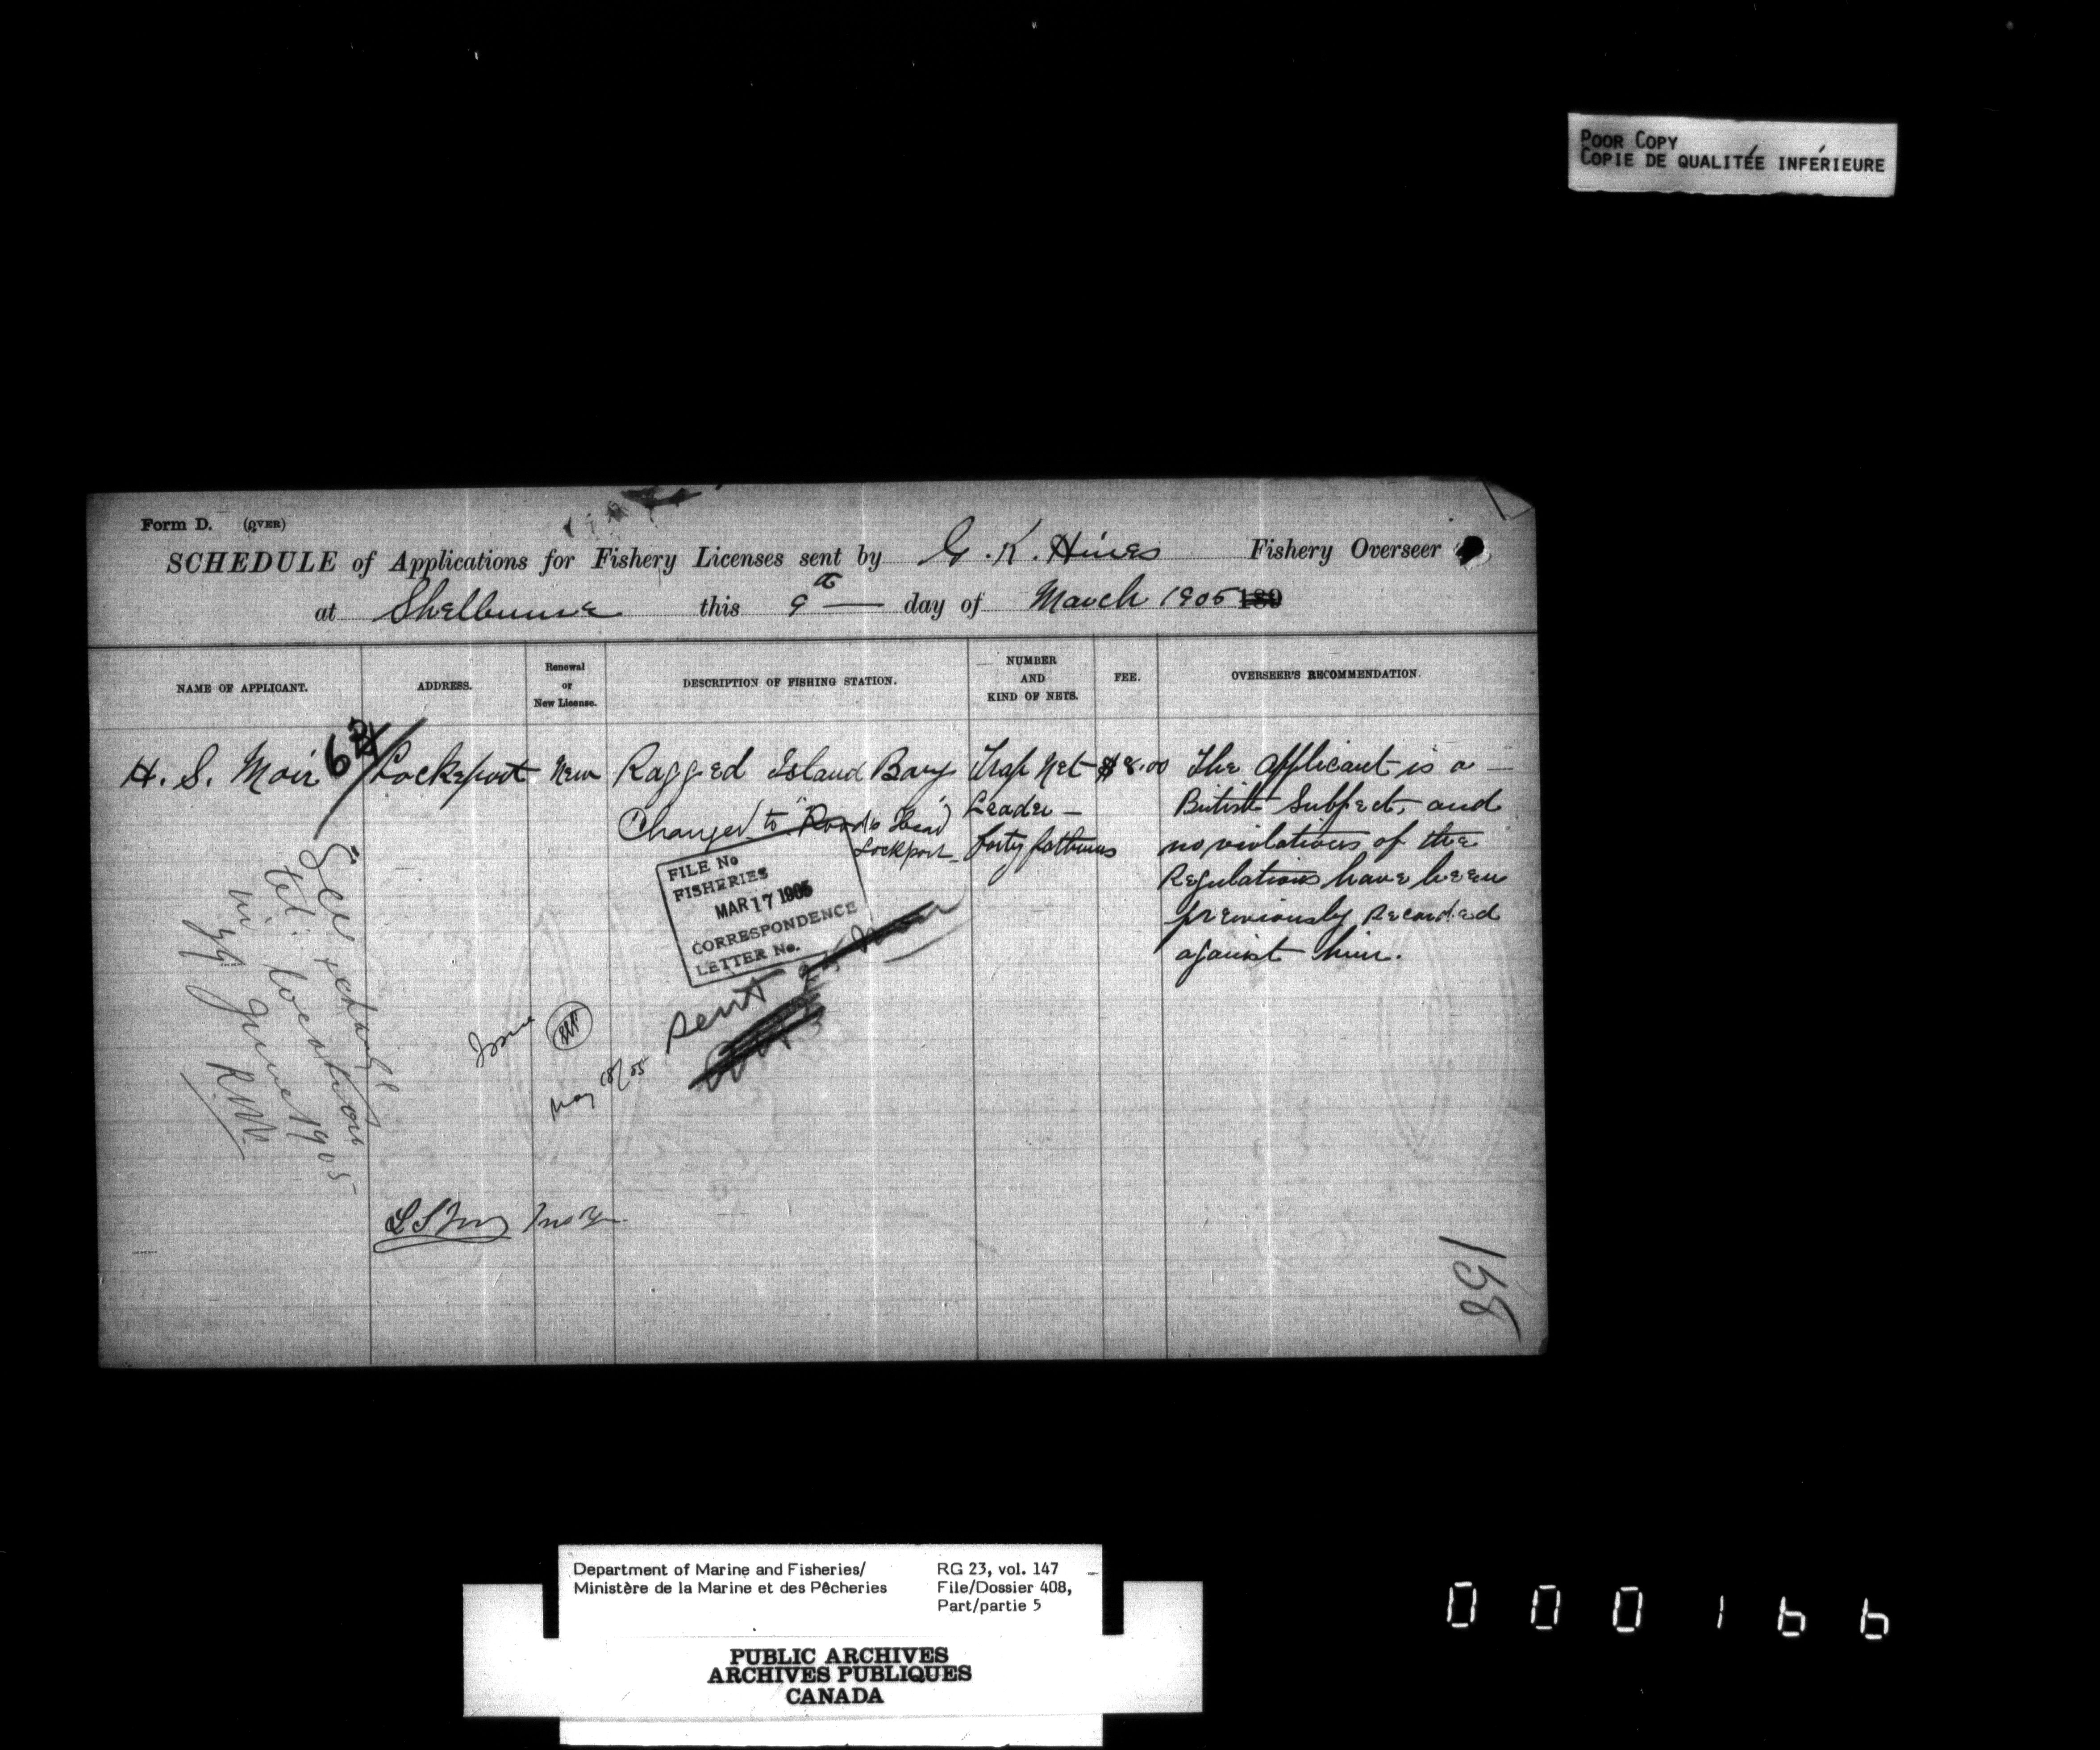 POOR COPY
COPIE DE QUALITÉE INFÉRIEURE
Form D. (OVER)
SCHEDULE of Applications for Fishery Licenses sent by G. K. Hines Fishery Overseer
at Shelburne this 9th day of March 1905 189
NAME OF APPLICANT. ADDRESS. Renewal or New License. DESCRIPTION OF FISHING STATION. NUMBER AND KIND OF NETS. FEE. OVERSEER'S RECOMMENDATION.
H. S. Moir 62 Lockeport New Ragged Island Bay Trap Net $8.00 The applicant is a
Leader British Subject, and
Changed to Rood's Head
Lockport forty fathoms no violations of the
Regulations have been
previously recorded
against him.
FILE No
FISHERIES
MAR 17 1905
CORRESPONDENCE
LETTER No.
sent
See exchange
of location
in
June 1905
R.N.V.
Issue
May 18/05
158
Department of Marine and Fisheries/
Ministère de la Marine et des Pêcheries
RG 23, vol. 147
File/Dossier 408,
Part/partie 5
PUBLIC ARCHIVES
ARCHIVES PUBLIQUES
CANADA
000166